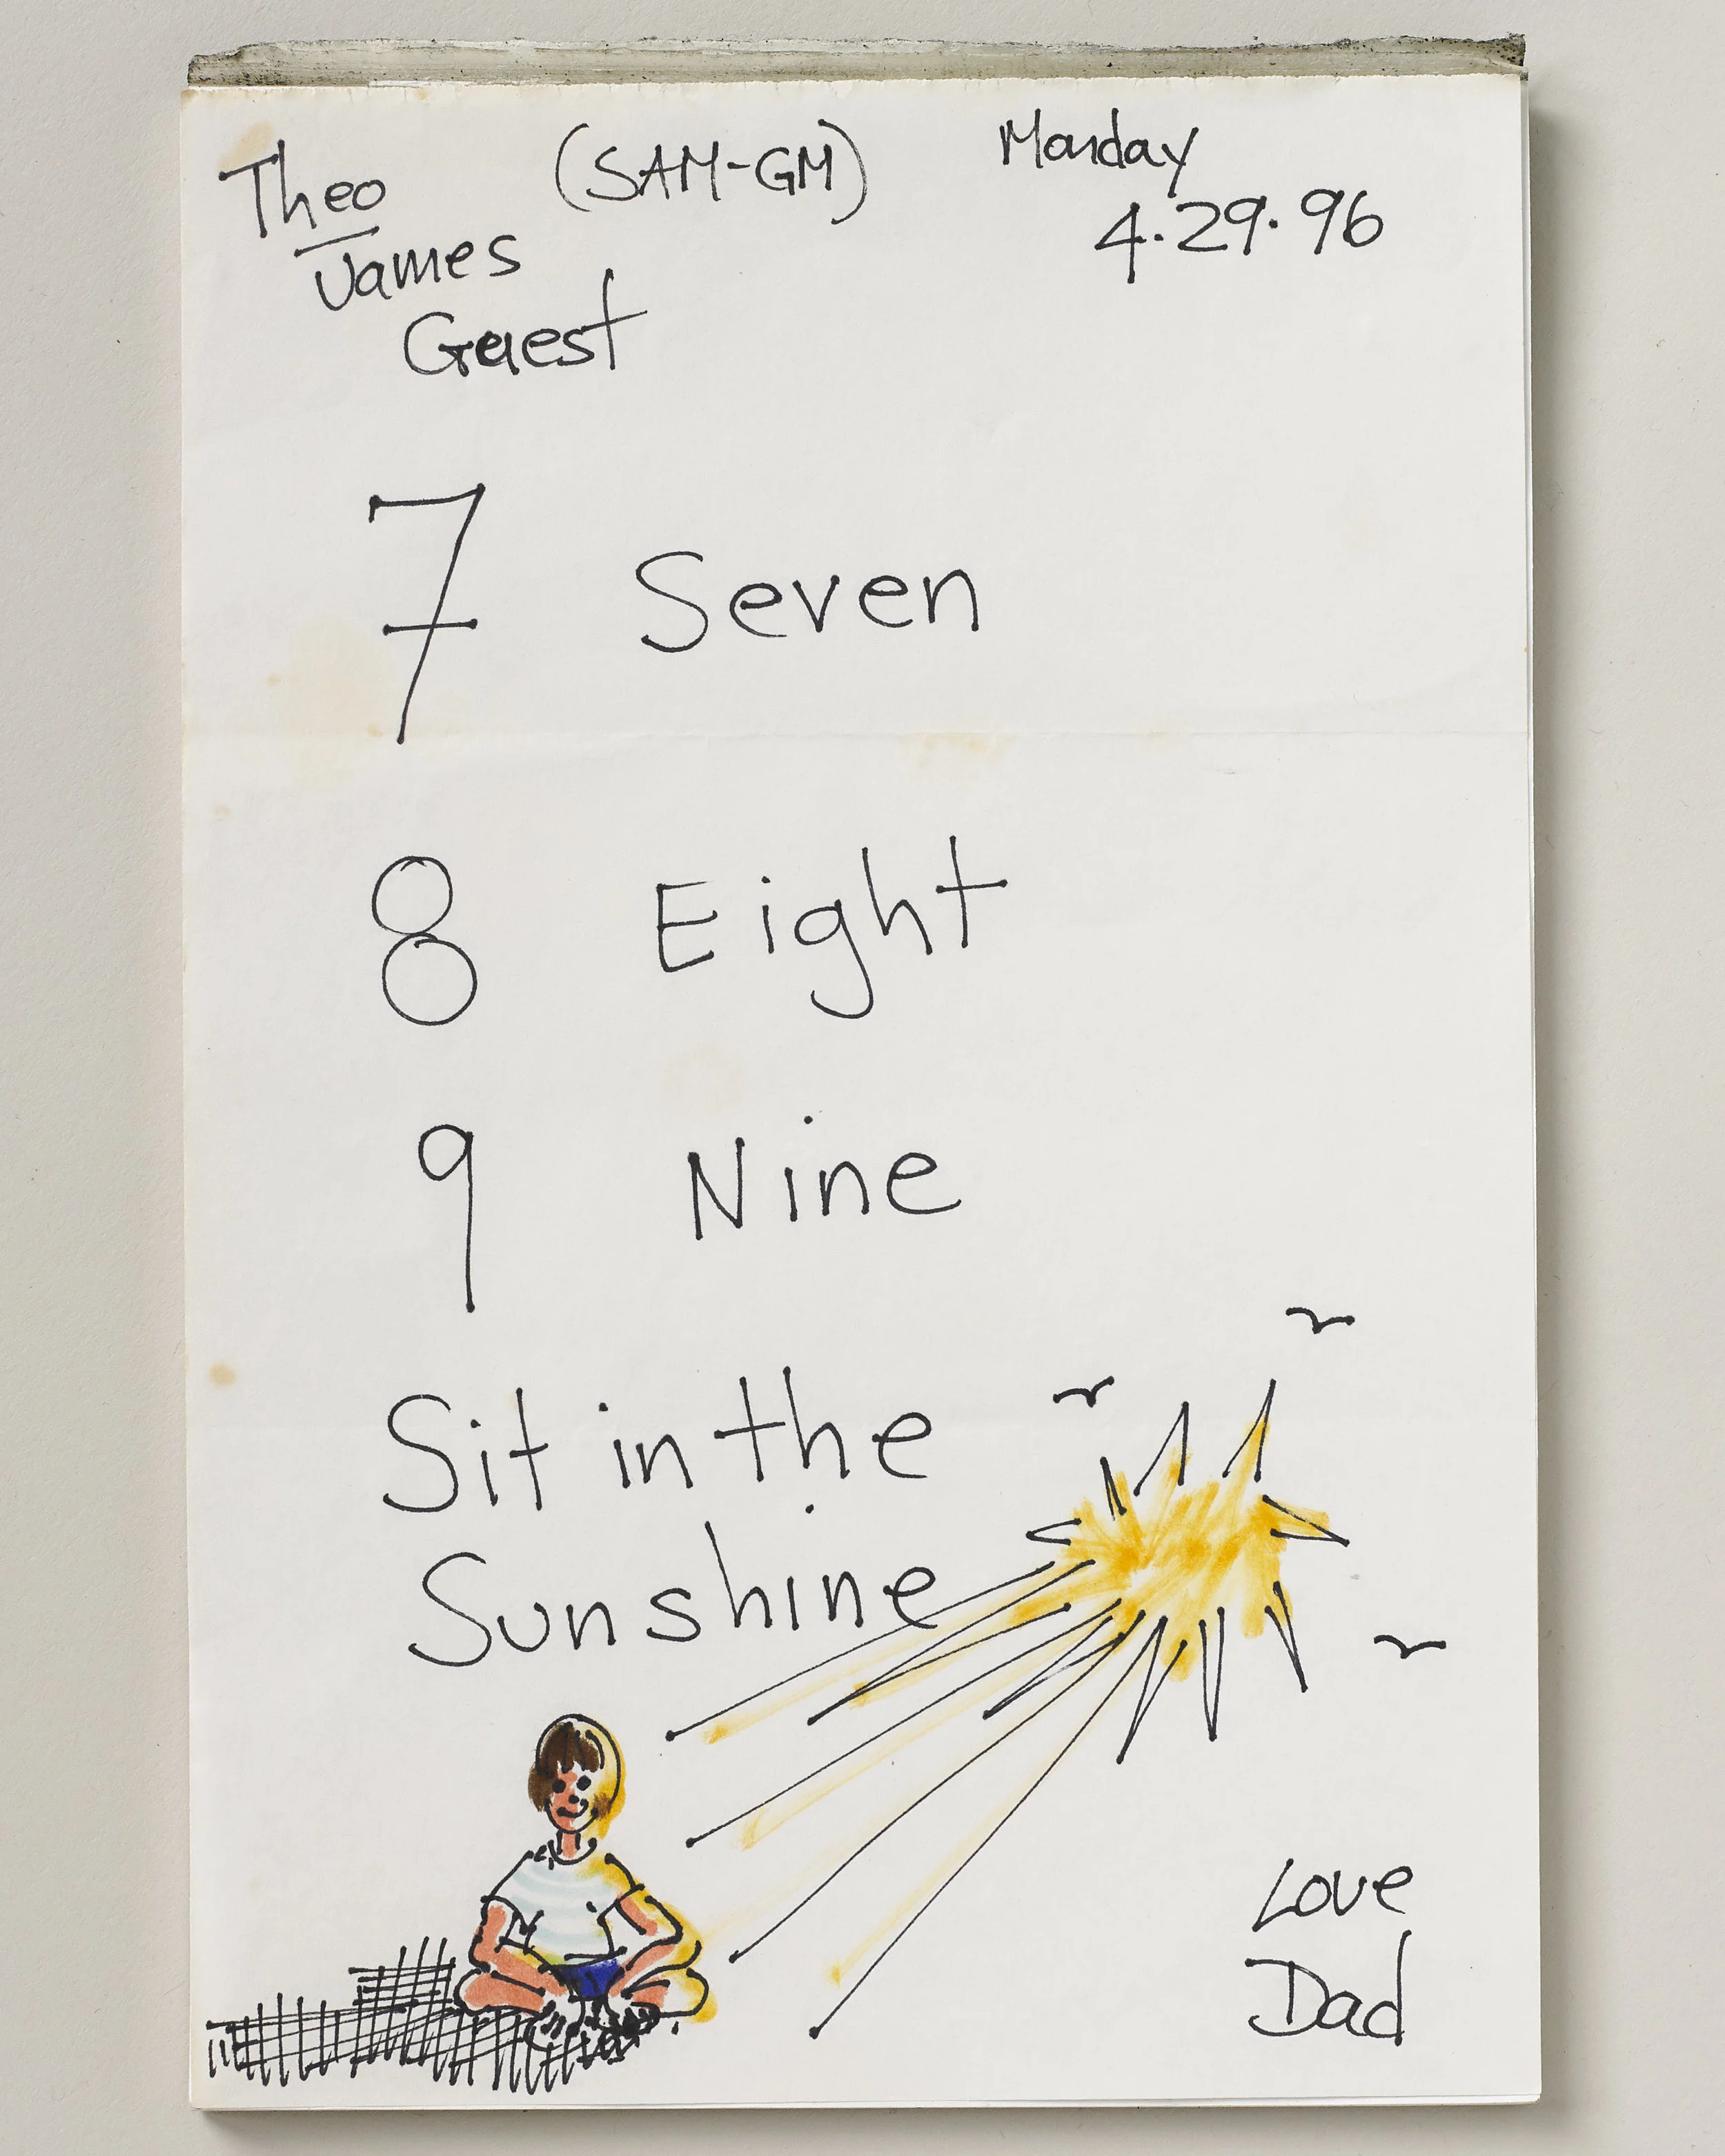 Theo
James
Guest
(SAM-GM)
Monday
4.29.96
7 Seven
8 Eight
9 Nine
Sit in the
Sunshine
Love
Dad